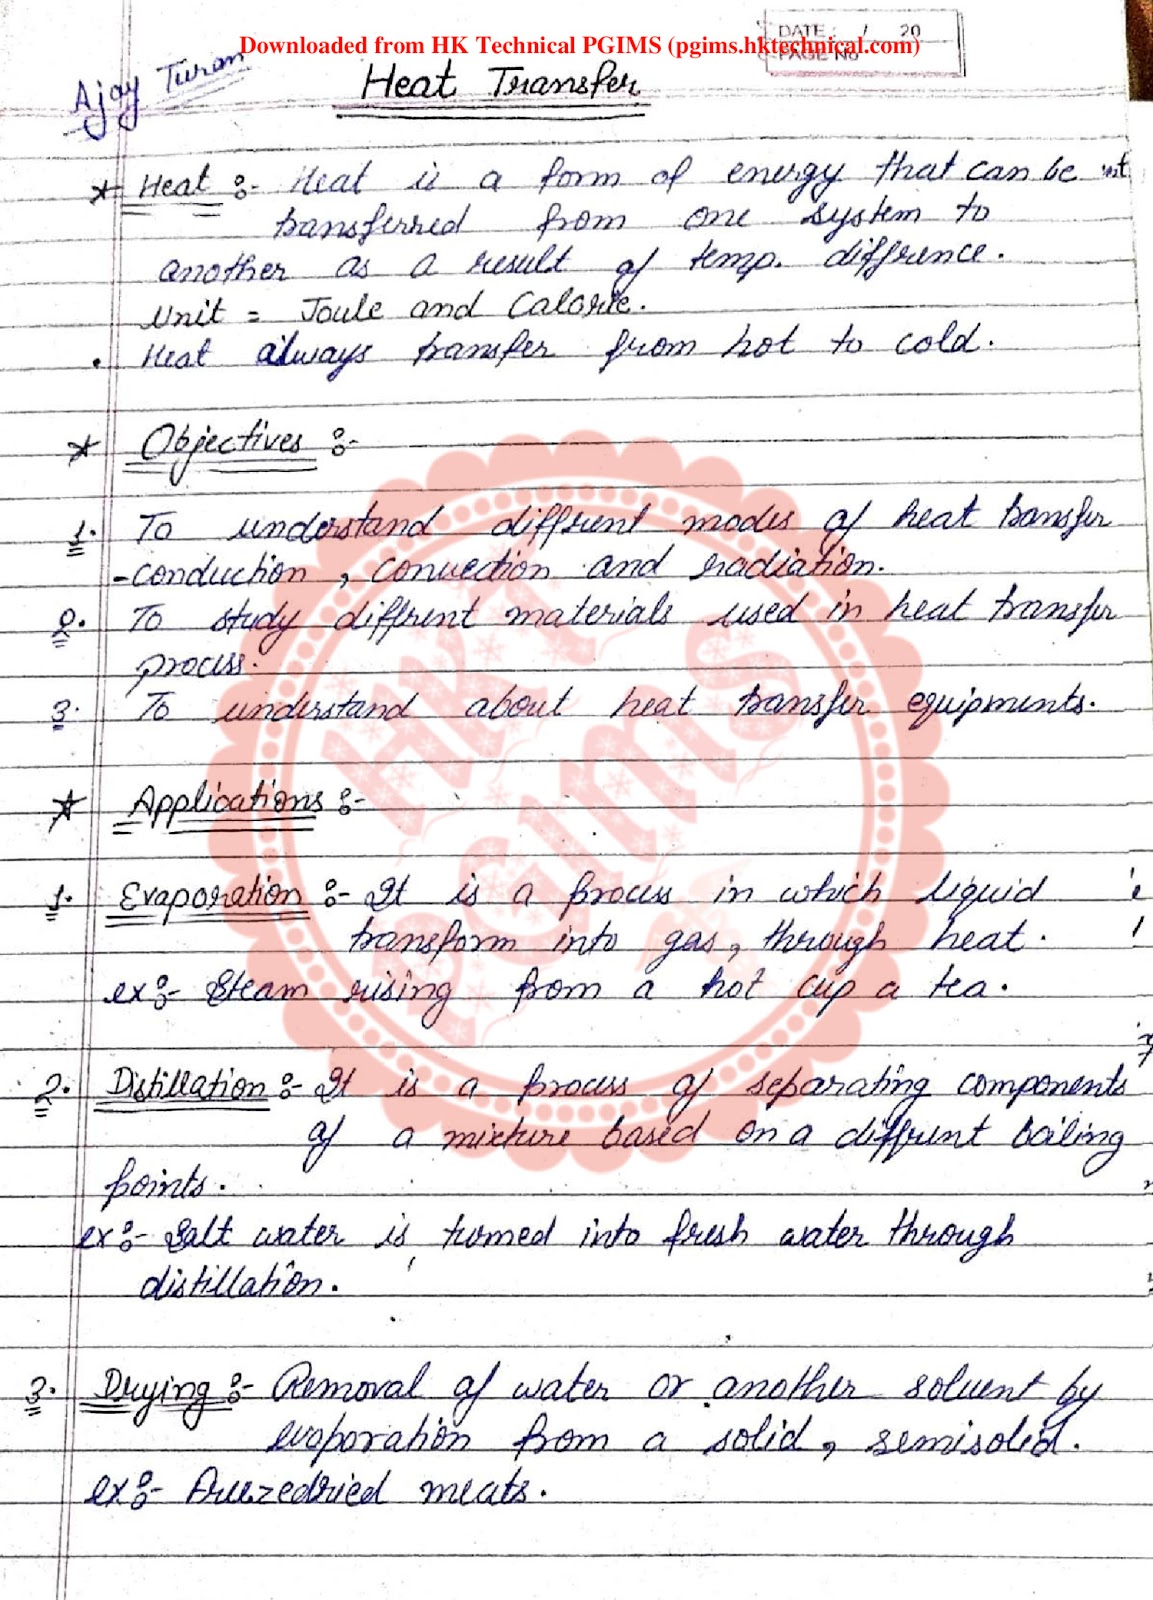 DATE: / 20
Downloaded from HK Technical PGIMS (pgims.hktechnical.com)
PAGE No
Ajay Turan
Heat Transfer
* Heat :- Heat is a form of energy that can be
transferred from one system to
another as a result of temp. diffrence.
Unit = Joule and Calorie.
• Heat always transfer from hot to cold.
* Objectives :-
1. To understand diffrent modes of heat transfer
-conduction, convection and radiation.
2. To study diffrent materials used in heat transfer
process.
3. To understand about heat transfer equipments.
* Applications :-
1. Evaporation :- It is a process in which liquid
transform into gas, through heat.
ex:- Steam rising from a hot cup a tea.
2. Distillation :- It is a process of separating components
of a mixture based on a diffrent boiling
points.
ex:- Salt water is turned into fresh water through
distillation.
3. Drying :- Removal of water or another solvent by
evaporation from a solid, semisolid.
ex:- Freezedried meats.
HKT
PGIMS